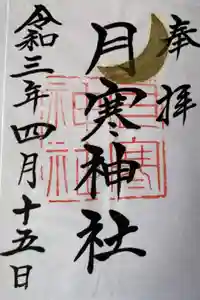 奉拝
月寒神社
令和三年四月十五日